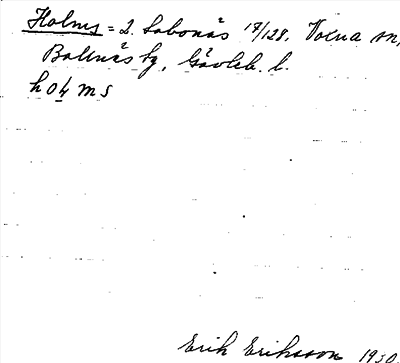 Holms = 2. Sabonäs 17/128. Voxna sn,
Bollnäs tg, Gävleb. l.
holms
Erik Eriksson 1930.